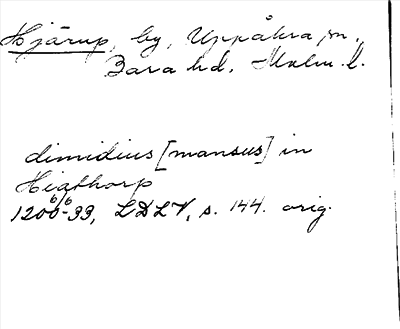 Hjärup, by, Uppåkra sn.,
Bara hd. Malm. l.
dimidius [mansus] in
Hiathorp
1200-33, LDLV, s. 144. orig.